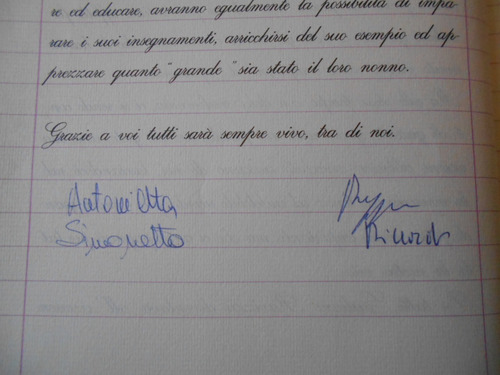 re ed educare, avranno egualmente la possibilità di impa-
rare i suoi insegnamenti, arricchirsi del suo esempio ed ap-
prezzare quanto "grande" sia stato il loro nonno.
Grazie a voi tutti sarà sempre vivo, tra di noi.
Antonietta
Simonetta